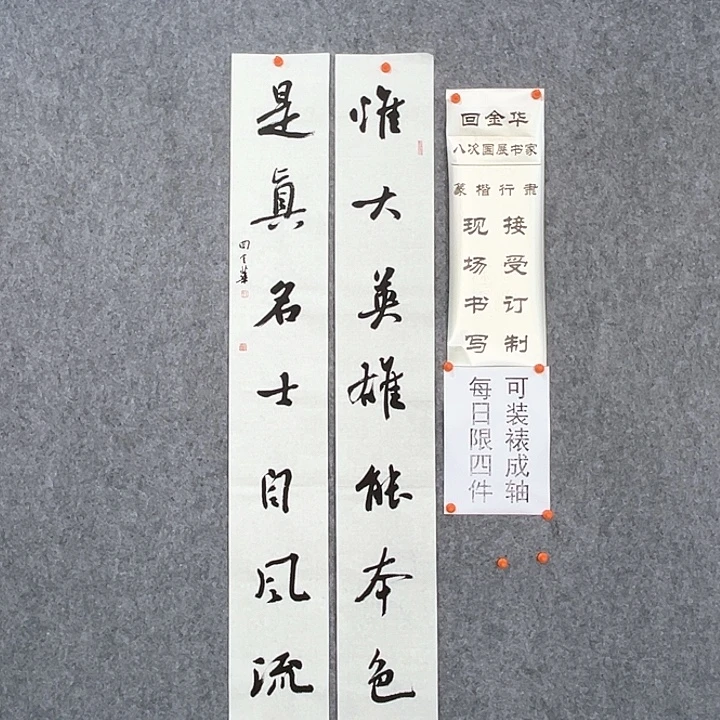 惟大英雄能本色
是真名士自风流
回金华
回金华
八次国展书家
篆楷行隶
接受订制
现场书写
可装裱成轴
每日限四件